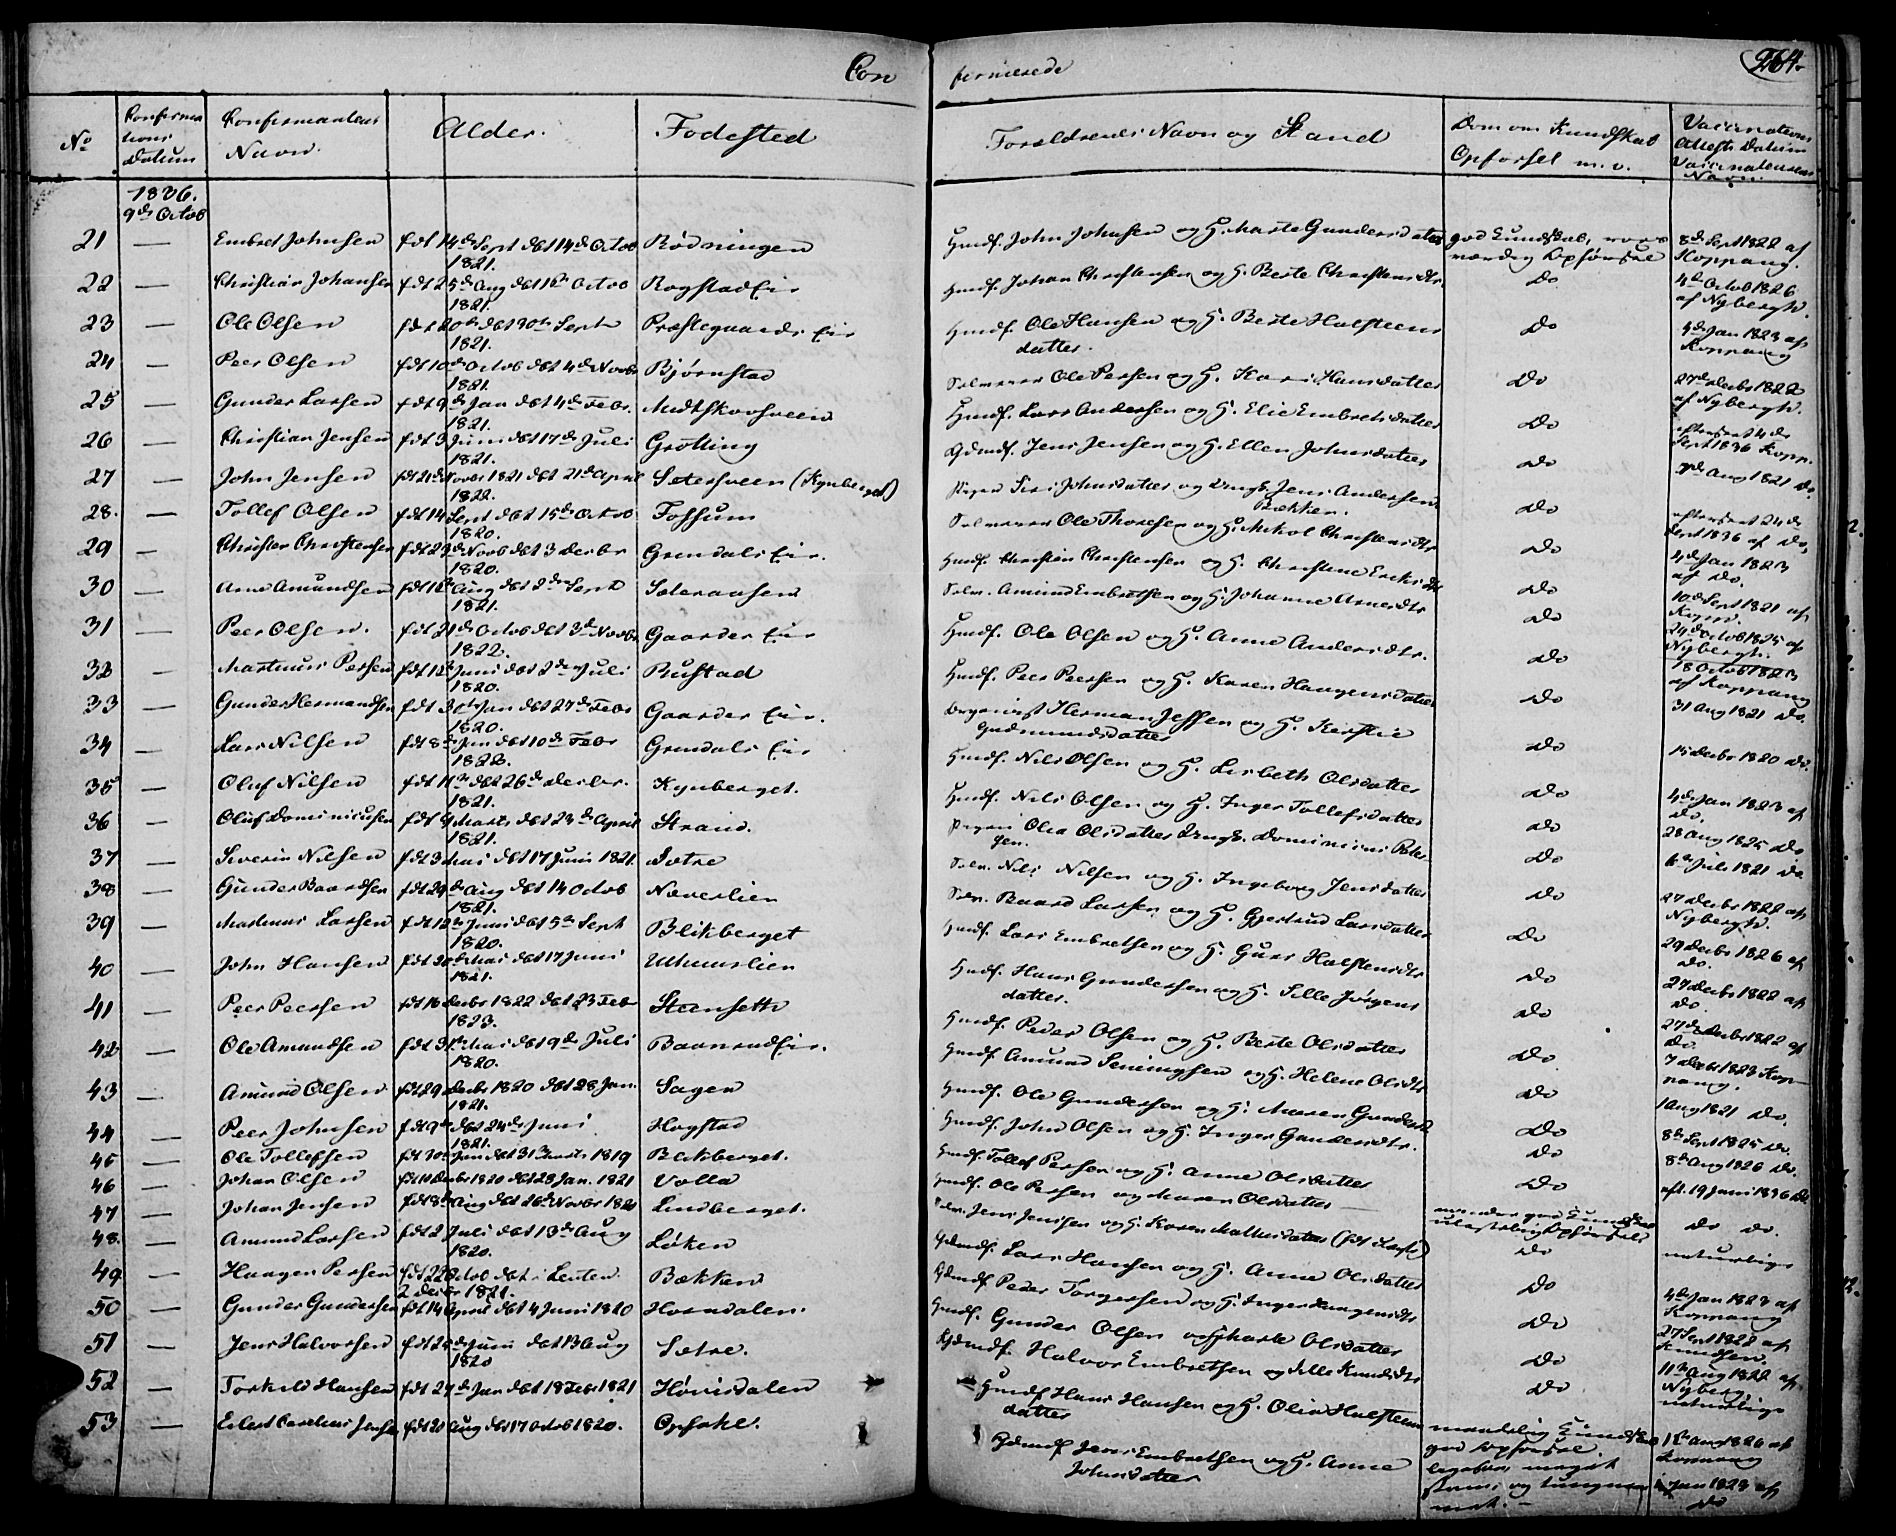 Con firmerede
264.
No
Confirmations Datum
Confirmantens Navn.
Alder.
Fødested
Forældrenes Navn og Stand
Dom om Kundskab Opførsel m.v.
Vaccinations Attests Datum Vaccinateurens Navn.
1836.
9de Octob
21 — Embret Johnsen fdt 14de Sept døbt 14de Octob 1821. Rødningen Huusmd. John Johnsen og H. Marte Gundersdatter god Kundskab, roesværdig Opførsel 8de Sept 1822 af Koppang.
22 — Christian Johansen fdt 25de Aug døbt 1ste Octob 1821. Rogstad Eie Huusmd. Johan Christensen og H. Berte Christensdtr. Do 4de Octob 1826 af Nybergh.
23 — Ole Olsen fdt 20de døbt 30te Septr 1821. Præstegaards Eie Huusmd. Ole Hansen og H. Berte Halsteens datter. Do 4de Jan 1823 af Koppang
24 — Peer Olsen fdt 10de Octob døbt 4de Novbr 1821. Bjørnstad Selveier Ole Persen og H. Kari Hansdatter Do 27de Decbr 1822 af Nybergh.
25 — Gunder Larsen fdt 9de Jan døbt 4de Febr. 1821. Midtskovsveen Huusmd. Lars Andersen og H. Elie Embretsdatter Do
26 — Christian Jensen fdt 3 Juni døbt 17de Juli 1821. Grøtting Gdmd. Jens Jensen og H. Ellen Johnsdatter Do Sept 1836 Kopp.
27 — John Jensen fdt 21de Novbr 1821 døbt 21de April 1822. Sætersveen (Kynberget) Pigen Siri Johnsdatter og Ungk. Jens Andersen Bækken. Do Aug 1821 Do.
28. — Tollef Olsen fdt 14 Sept døbt 15de Octob 1820. Fossum Selveier Ole Thoresen og H. Mikol Christensdtr Do Sept 1836 af Do,
29 — Christen Christensen fdt 23de Novb døbt 3 Decbr 1820. Grindals Eie. Huusmd. Christen Christensen og H. Christine Ericksdtr Do 4de Jan 1823 af Do.
30 — Arne Amundsen fdt 16de Aug døbt 2den Sept 1821. Sæteraasen Selv. Amund Embretsen og H. Johanne Arnesdtr Do 10de Sept 1821 af Kopp.
31 — Peer Olsen. fdt 21de Octob døbt 3de Novbr 1822. Gaarder Eie Huusmd. Ole Olsen og H. Anne Andersdtr. Do 24de Octob 1825 af Nybergh.
32 — Martinus Persen fdt 12te Juni døbt 2den Juli 1820. Rustad Huusmd. Peer Peersen og H. Karen Haagensdatter Do 18 Octob 1823 af Koppang
33 — Gunder Hermandsen fdt 31te Jan døbt 27de Febr 1820. Gaarder Eie. Herman Jepsen og H. Kerstie Gudmundsdatter Do 31 Aug 1821 Do.
34 — Lars Nilsen fdt 8de Jan døbt 10de Febr 1822. Grindals Eie Huusmd. Nils Olsen og H. Lisbeth Olsdatter Do 15 Decbr 1820 Do.
35 — Oluf Nilsen fdt 11te døbt 26de Decbr. 1821. Kynberget. Huusmd. Nils Olsen og H. Inger Tollefsdatter Do 4de Jan 1823 af Do.
36 — Oluf Dominicusen fdt 9 Marts døbt 23de April 1821. Strand. Pigen Olea Olsdatter Ungk. Dominicus Do 28 Aug 1825 Do
37 — Severin Nilsen fdt 3 Mai døbt 17 Juni 1821. Sætre Selv. Nils Nilsen og H. Ingeborg Jensdatter Do 6te Juli 1821 Do
38 — Gunder Baardsen fdt 29de Aug døbt 14 Octob 1821. Næverlien Selv. Baard Larsen og H. Gjertrud Larsdatter Do 27 Decbr 1822 af Nybergh.
39 — Martinus Larsen fdt 12te Juni døbt 5te Sept 1820. Blikberget Huusmd. Lars Embretsen og H. Guri Halstensdtr Do 29 Decbr 1826 af Do.
40 — John Hansen fdt 30te Mai døbt 17 Juni 1821. Uthuuslien Huusmd. Hans Gundersen og H. Sille Jørgens datter. Do 27 Decbr 1822 af Do
41 — Peer Peersen fdt 16 Decbr 1822 døbt 23 Febr 1823. Steensæth Huusmd. Peder Olsen og H. Berte Olsdatter Do 27de Decbr 1822 af Do
42 — Ole Amundsen fdt 31te Mai døbt 9de Juli 1820. Baunrud Eie. Huusmd. Amund Semingsen og H. Helene Olsdtr Do. 7 Decbr 1823 Koppang.
43 — Amund Olsen fdt 29 Decbr 1820 døbt 28 Jan. 1821. Sagen Huusmd. Ole Gundersen og H. Maren Gundersdtr Do 1 Aug 1821 Do.
44 — Peer Johnsen fdt 9de døbt 24de Juni 1821. Hogstad Huusmd. John Olsen og H. Inger Gundersdtr. Do 8de Sept 1825 Do.
45 — Ole Tollefsen fdt 30te Jan døbt 31 Marts 1819 Blikberget. Huusmd. Tollef Persen og H. Anne Olsdatter Do 8de Aug 1826 Do.
46 — Johan Olsen fdt 10 Decbr 1820 døbt 28 Jan. 1821 Volla Huusmd. Ole Persen og Maren Olsdatter — Do 19 Juni 1836 Do
47 — Johan Jensen fdt 8de Aug døbt 26de Novbr 1820 Lindberget. Selv. Jens Jensen og H. Karen Mathisdatter mindre god Kundskab ulastelig Opførsel Do Do.
48. — Amund Larsen fdt 2 Juli døbt 13de Aug 1820. Løken Gdmd. Lars Hansen og H. Anne Olsdatter Do naturlige
49. — Haagen Persen fdt 22 Octob døbt i Leuten 2 Decbr 1821. Bækken Gdmd. Peder Torgersen og H. Inger Haagensdtr Do 4de Jan 1823 af Koppang
50 — Gunder Gundersen fdt 14 April døbt 4 Juni 1820 Horndalen. Huusmd. Gunder Olsen og Marte Olsdatter Do 27 Sept 1822 af Knudsen.
51 — Jens Halvorsen fdt 24de Juni døbt 13 Aug 1820 Sætre. Gdmd. Halvor Embretsen og Sille Knudsdtr Do 11te Aug 1822 af Nyberg,
52 — Torkild Hansen fdt 27de Jan døbt 18 Febr 1821 Hovisdalen Huusmd. Hans Hansen og H. Olia Halsteens datter Do naturlige
53 — Edert Carelius Jensen fdt 20 Aug døbt 17 Octob 1820. Opsahl. Gdmd. Jens Embretsen og H. Anne Johnsdatter maadelig Kundskab god Opførsel. ligesom meget stam og tungnem 1te Aug 1826 af Koppang
Jan 1823 af Do